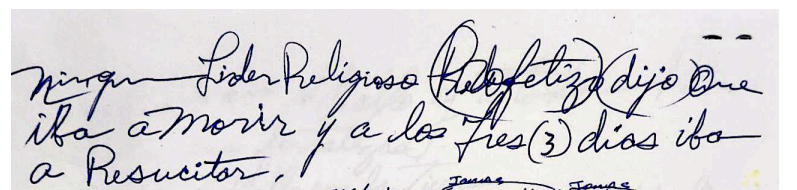 Ningun Lider Religioso (Profetizo)(dijo) Que
iba a Morir y a los Tres (3) dias iba
a Resucitar.
Jamas Jamas